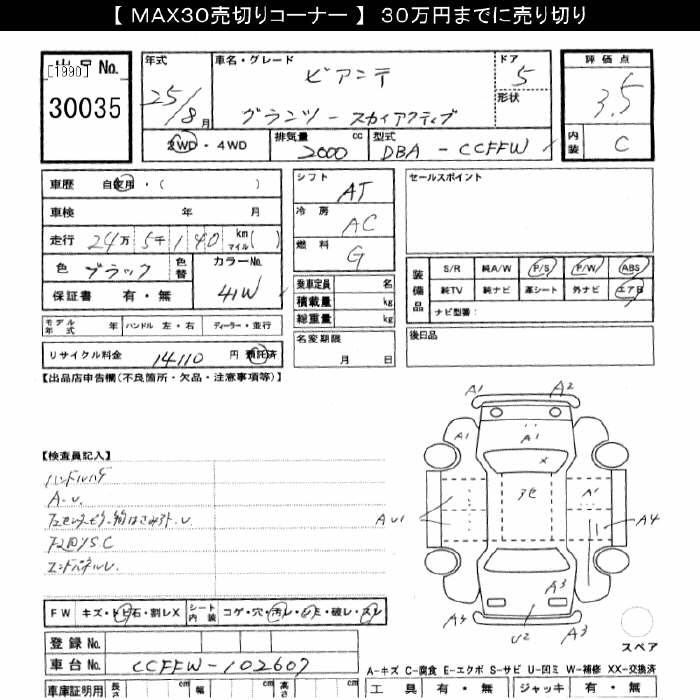 【 MAX30売切りコーナー 】 30万円までに売り切り
出品No.
[1990]
30035
年式
25/8月
車名・グレード
ビアンテ
グランツ-スカイアクティブ
ドア
5
形状
評価点
3.5
内装
C
2WD・4WD
排気量 2000 cc
型式 DBA - CCFFW
車歴 自家用・( )
車検 年 月
走行 24万 5千 1 40 km マイル( )
色 ブラック 色替
カラーNo. 41W
保証書 有・無
モデル年式 年 ハンドル 左・右 ディーラー・並行
リサイクル料金 14110 円 預託済
シフト AT
冷房 AC
燃料 G
乗車定員 名
積載量 kg
総重量 kg
名変期限
月 日
セールスポイント
装備品
S/R 純A/W P/S P/W ABS
純TV 純ナビ 革シート 外ナビ エアB
ナビ型番:
後日品
【出品店申告欄(不良箇所・欠品・注意事項等)】
【検査員記入】
ハンドルハゲ
A-U.
F2回ソSC
エンドパネルU.
A1 A2
A1 A1
X
アセ A'
AU1 A4
A3
A4 U2 A3
スペア
FW キズ・トビ石・割レX シート内装 コゲ・穴・汚レ・シミ・破レ・スレ
登録No.
車台No. CCFFW-102607
車庫証明用 長さ cm 幅 cm 高さ cm
A-キズ C-腐食 E-エクボ S-サビ U-凹ミ W-補修 XX-交換済
工具 有・無 ジャッキ 有・無